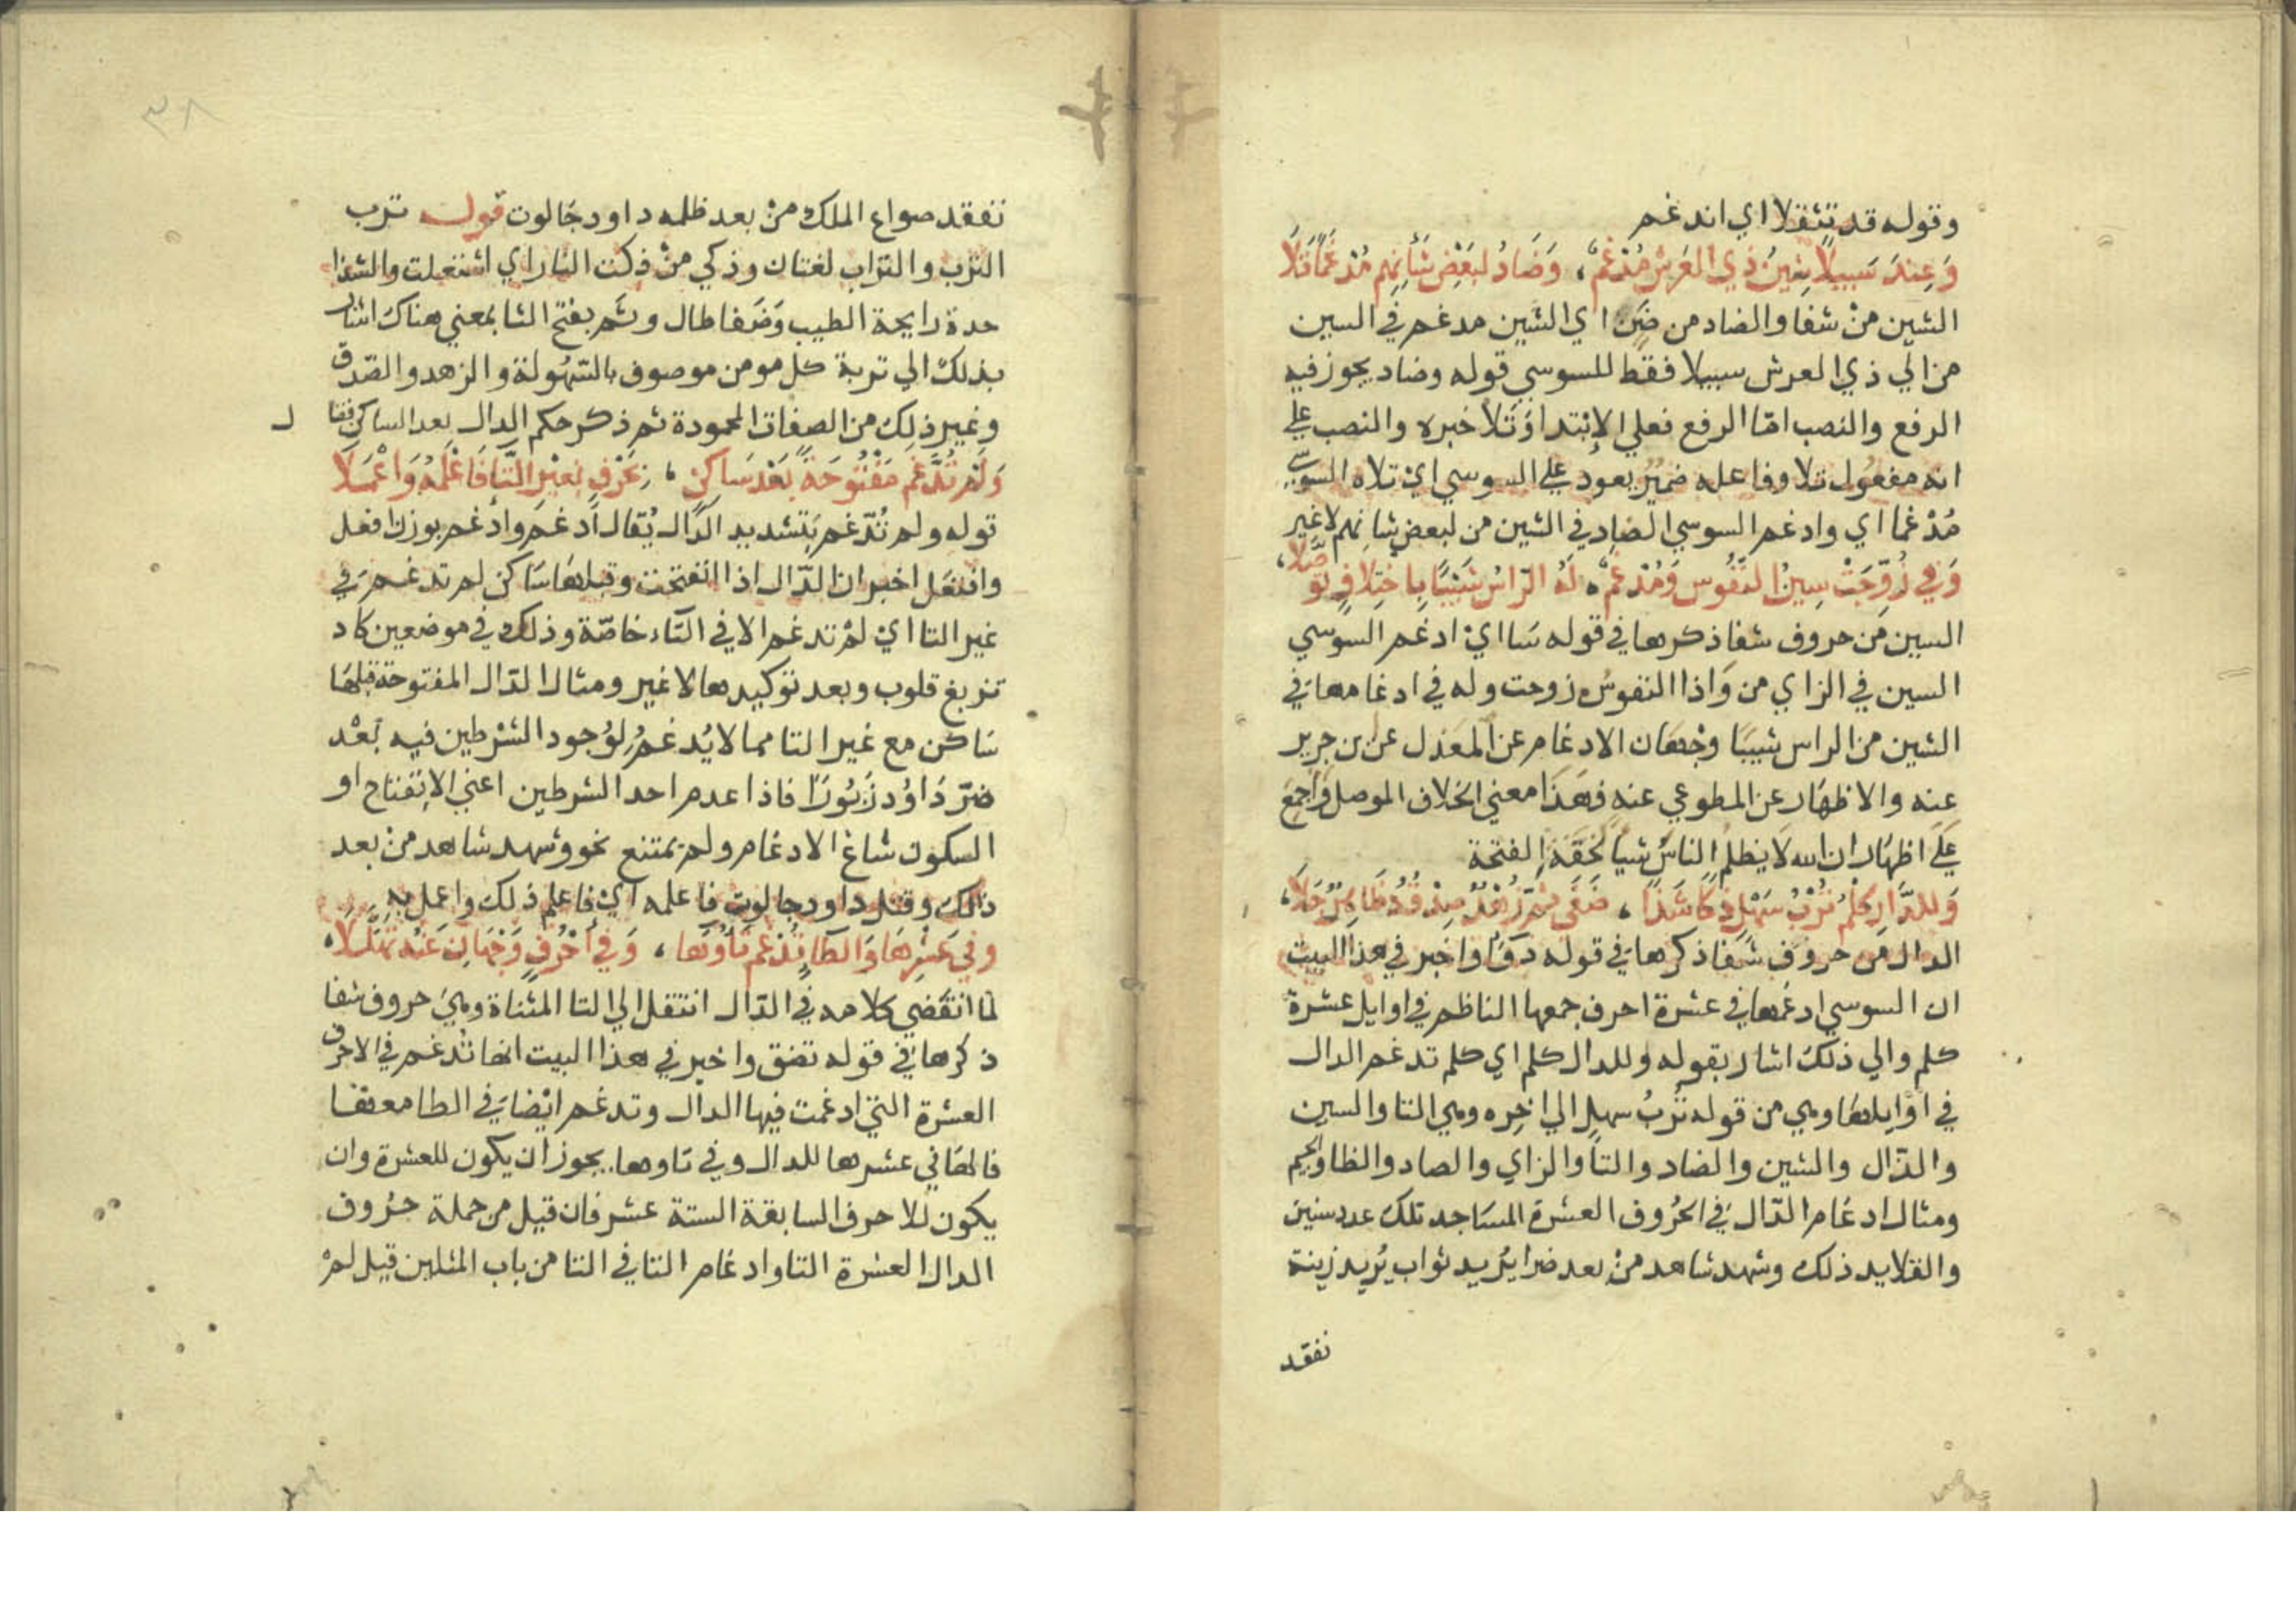 وقوله قد تثقلا اي اندغم
وَعِندَ سَبِيلًا شِينُ ذِي العَرشِ مُدْغَمٌ ، وَضَادُ لبَعْضِ شَأْنِهِم مُدْغَمًا تَلَا
الشين منْ شفا والضاد من ضَنٍ اي الشين مدغم في السين
من الي ذي العرش سبيلا فقط للسوسي قوله وضاد يجوز فيه
الرفع والنصب امّا الرفع فعلي الإبْتدا وَتَلا خبره والنصب علي
انه مفعُول تلا وفاعله ضميْر يعود علي السوسي ايْ تلاه السوسي
مُدْغما اي وادغم السوسي الضاد في الشين من لبعض شانهم لاغير
وَفِي زُوِّجَتْ سِينُ النُّفُوسِ وَمُدْغَمٌ ، لَهُ الرّاسُ شَيْبًا بِاخْتِلافٍ تَوَصَّلَا ،
السين مَن حروف شفا ذكرها في قوله سَا ايْ ادغم السوسي
السين في الزاي من وَاذا النفوسُ زوجت وله في ادغامها في
الشين من الراس شيبًا وجْهَان الادغام عن المعَدل عن بن جرير
عنه والاظهَار عن المطوعي عنه فهَذَا معني الخلاف الموصل وَاجمَعَ
عَلَي اظهَار ان الله لَا يظلم الناسُ شيأ لخفّة الفتحة
وَلِلدَّالِ كِلْمٌ تُرْبُ سَهْلٍ ذَكَا شَذًا ، ضَفَى ثَمَّ زُهْدٌ صِدْقُهُ ظَاهِرٌ جَلَا ،
الدال من حروف شفا ذكرها في قوله دَوَا واخبر في هذا البيت
ان السوسي ادغمها في عشرة احرف جمعها الناظم في اوايل عشرة
كلم والي ذلك اشار بقوله وللدال كلم اي كلم تدغم الدال
في اوايلها وهي من قوله تُربُ سهلٍ الي اخِره وهي التا والسين
والذّال والشين والضاد والثا والزاي والصاد والظا والجيم
ومثال ادغام الدّال في الحُروف العشرة المسَاجد تلك عدد سنين
والقلايد ذلك وشهد شاهد منْ بعد ضرا يُريد ثواب يُريد زينة
نفقد
٣٨
نفقد صواع الملك منْ بعد ظلمه داود جَالوت قوله ترب
التُرب والتراب لغتان وذكي منْ ذكت النار اي اشتعلت والشذا
حدة رايحة الطيب وَضَفا طال وثَم بفتح الثا بمعني هناك اشار
بذلك الي تربة كل مومن موصوف بالسّهُولة والزهد والصّدق
وغير ذلك من الصفات المحمودة ثم ذكر حكم الدال بعد الساكن فقال
وَلَمْ تُدَّغَم مَفْتُوحَةً بَعْدَ سَاكِنٍ ، بِحَرْفٍ بِغيْرِ التَّا فَاعْلَمْهُ وَاعْمَلَا
قوله ولم تُدّغم بتشديد الدّال يُقال أدغمَ وادّغم بوزن افعل
وافتعَل اخبر ان الدّال اذا انفتحت وقبلها سَاكن لم تدغم في
غير التا ايْ لمْ تدغم الا في التّاء خاصّة وذلك في موضعين كاد
تزيغ قلوب وبعد توكيدها لا غير ومثال الدّال المفتوحة قبلها
سَاكن مع غير التا مما لا يُدغمُ لوُجود الشرْطين فيه بَعْد
ضرّ دَاوُد زَبُورًا فاذا عدم احد الشرطين اعني الإنفتاح او
السكون شاغ الادغام ولم يمتنع نحو وشهد شاهد منْ بعد
ذلك وقتل داود جالوت فاعلمه ايْ فاعلم ذلك واعمل به
وفي عَشْرِهَا وَالطَّا تُدْغَم تَاؤُهَا ، وَفي أَحْرُفٍ وَجْهَانِ عَنْهُ تَهَلَّلَا ،
لما انقَضي كلامه في الدّال انتقل الي التا المثناة وهي حروف شفا
ذكرها في قوله تضق واخبر في هذا البيت انها تُدغم في الاحرف
العشرة التي ادغمت فيها الدال وتدغم ايْضا في الطا معها
فالهَا في عشرها للدال وفي تاوها يجوز ان يكون للعشرة وان
يكون للاحرف السابقة الستة عشر فان قيل من جملة حرُوف
الدال العشرة التا وادغام التا في التا من باب المثلين قيل لمْ